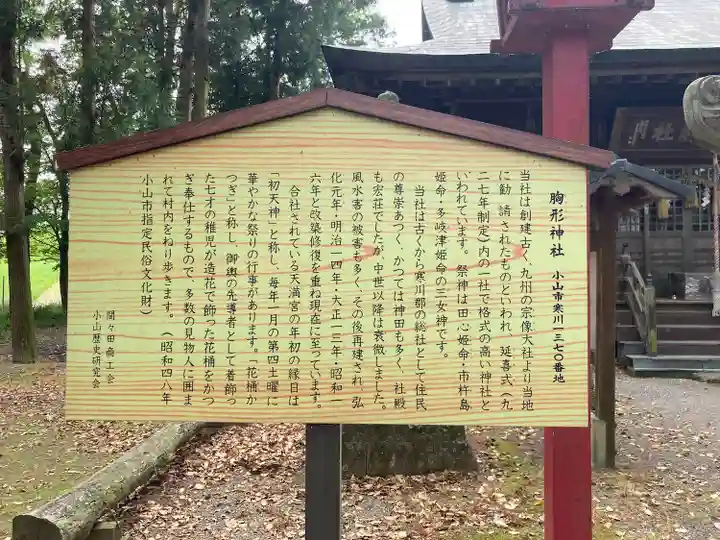 胸形神社 小山市寒川一三七〇番地
当社は創建古く、九州の宗像大社より当地
に勧請されたものといわれ、延喜式(九
二七年制定)内の一社で格式の高い神社と
いわれています。祭神は田心姫命・市杵島
姫命・多岐津姫命の三女神です。
当社は古くから寒川郡の総社として住民
の尊崇あつく、かつては神田も多く、社殿
も宏荘でしたが、中世以降は衰微しました。
風水害の被害も多く、その後再建され、弘
化元年・明治一四年・大正一三年・昭和一
六年と改築修復を重ね現在に至っています。
合社されている天満宮の年初の縁日は
「初天神」と称し、毎年一月の第四土曜に
華やかな祭りの行事があります。「花桶か
つぎ」と称し、御輿の先導者として着飾っ
た七才の稚児が造花で飾った花桶をかつ
ぎ奉仕するもので、多数の見物人に囲ま
れて村内をねり歩きます。(昭和四八年
小山市指定民俗文化財)
間々田商工会
小山歴史研究会
社